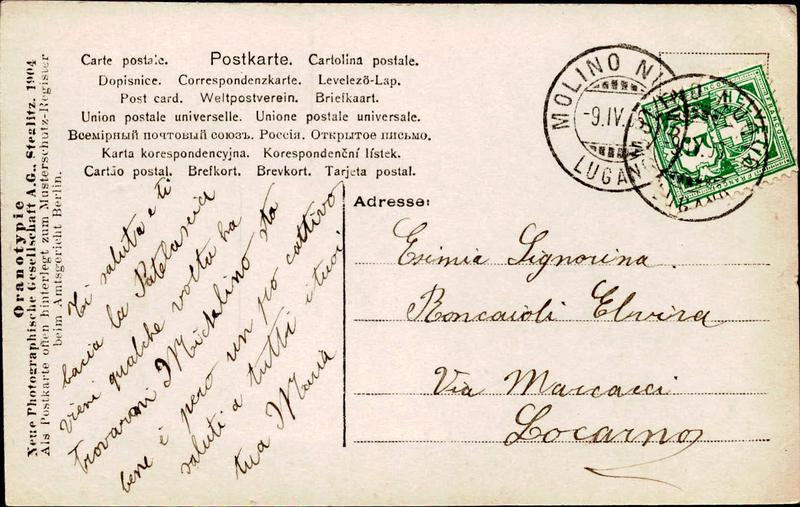 Carte postale. Postkarte. Cartolina postale.
Dopisnice. Correspondenzkarte. Levelezõ-Lap.
Post card. Weltpostverein. Briefkaart.
Union postale universelle. Unione postale universale.
Всемірный почтовый союзъ. Россія. Открытое письмо.
Karta korespondencyjna. Korespondenční lístek.
Cartão postal. Brefkort. Brevkort. Tarjeta postal.
Oranotypie
Neue Photographische Gesellschaft A.G., Steglitz. 1904
Als Postkarte offen hinterlegt zum Musterschutz-Register
beim Amtsgericht Berlin.
Ti saluta e ti
bacia la Patelascia
Vieni qualche volta ha
trovarmi Michelino sta
bene è pero un po cattivo
saluti a tutti i tuoi
tua Maria
Adresse:
Esimia Signorina
Roncaioli Elvira
Via Marcacci
Locarno
MOLINO NU
-9.IV.
LUGANO
HELVETIA